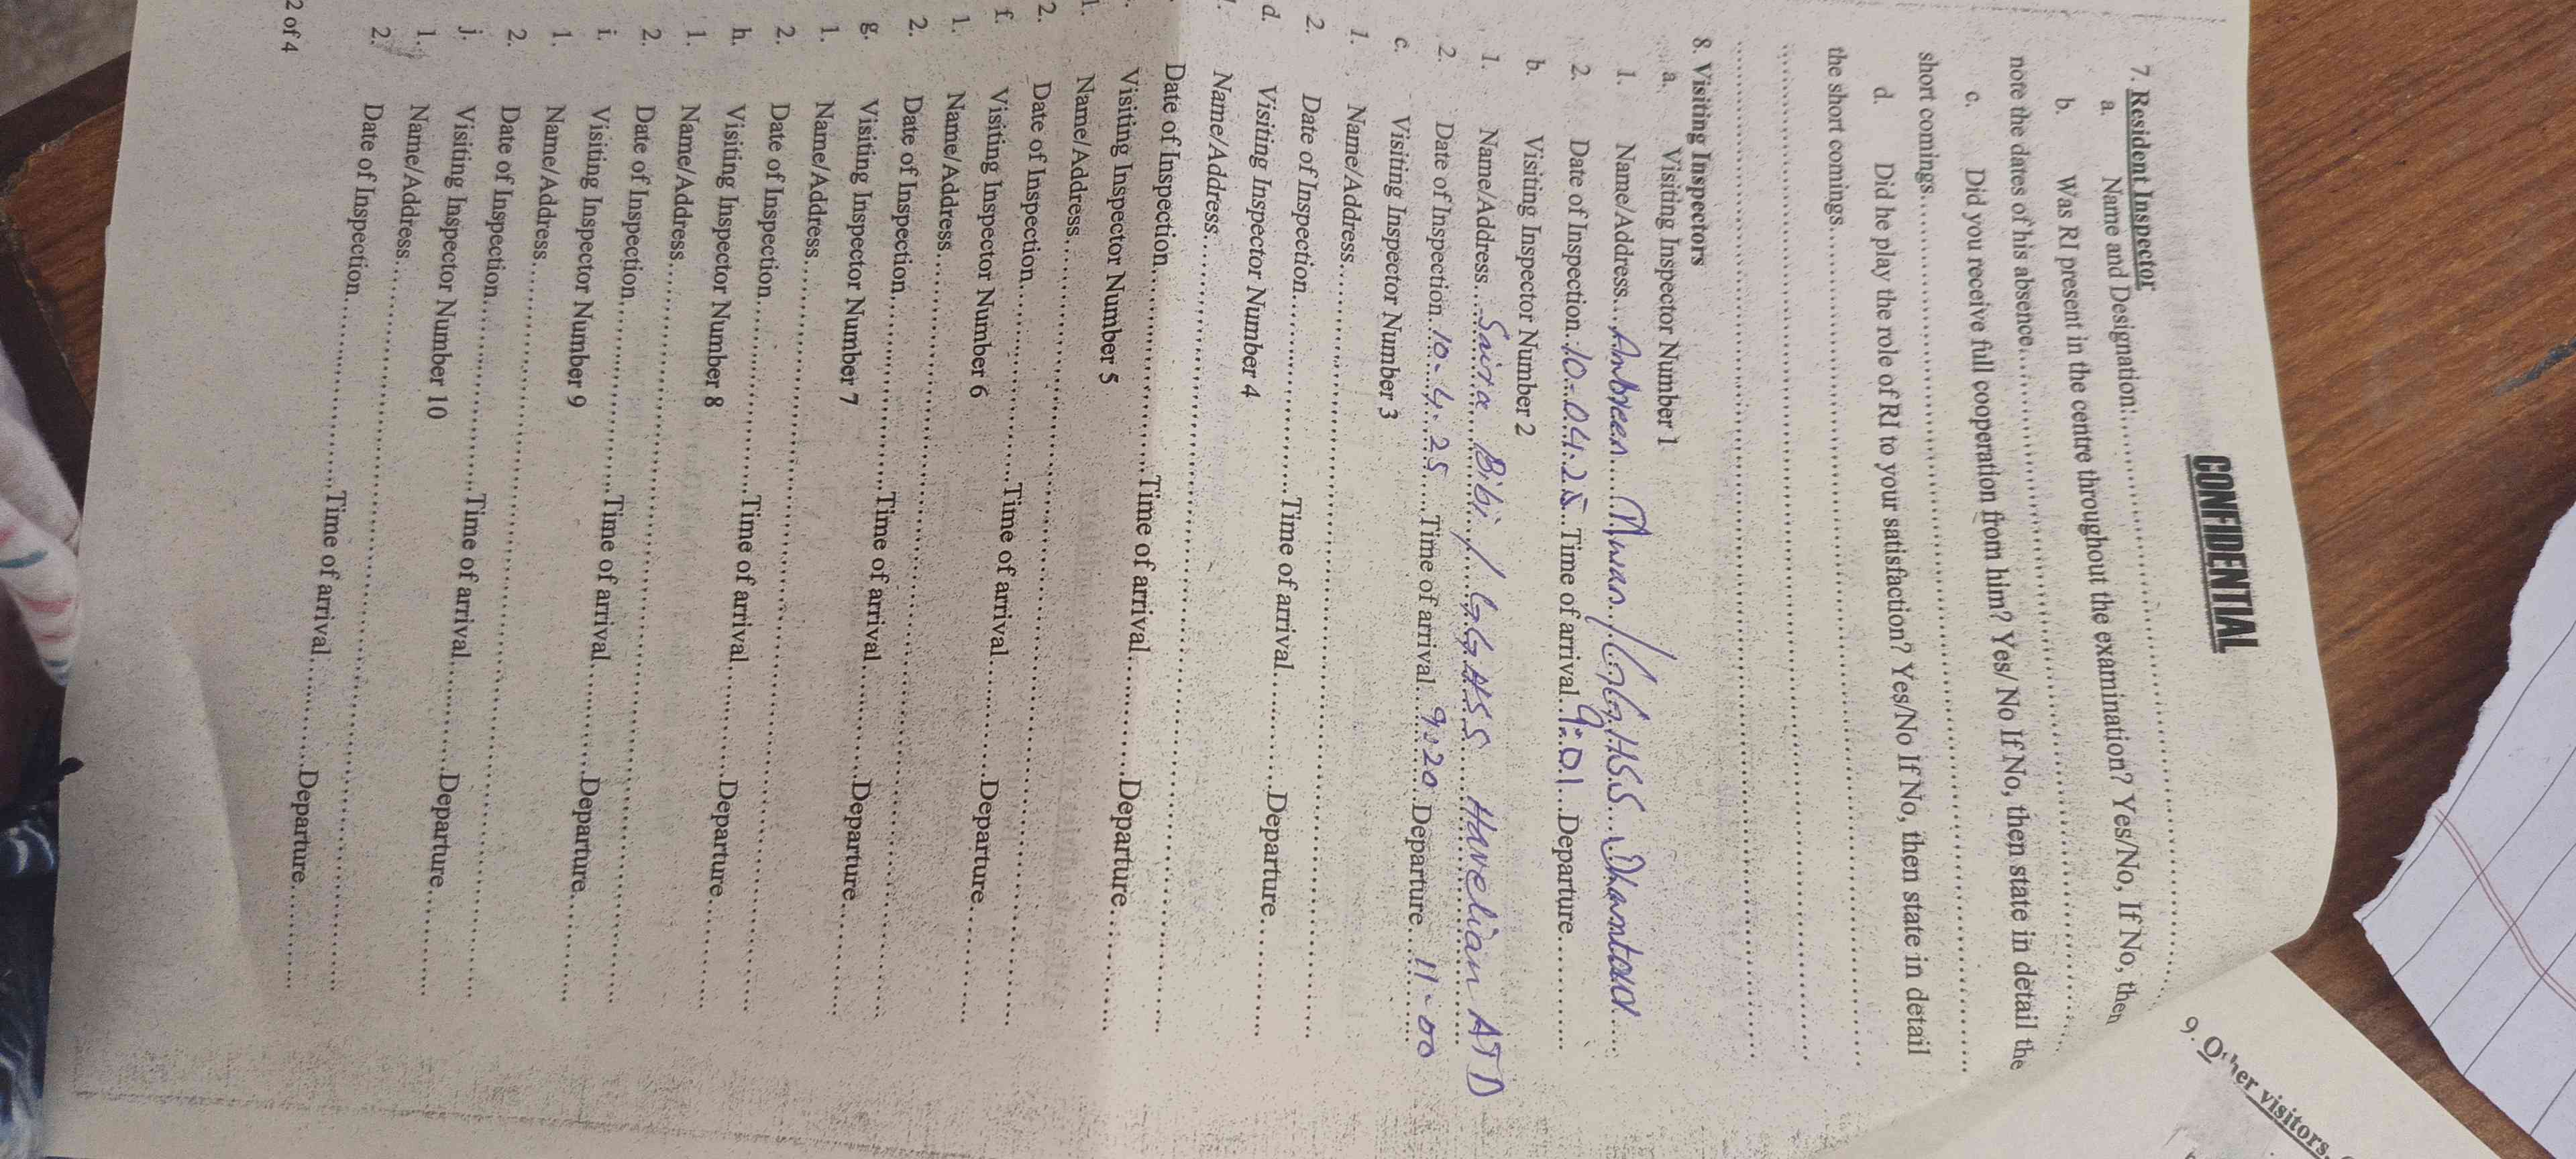 CONFIDENTIAL
7. Resident Inspector
a. Name and Designation:..............................
b. Was RI present in the centre throughout the examination? Yes/No, If No, then
note the dates of his absence..............................
c. Did you receive full cooperation from him? Yes/ No If No, then state in detail the
short comings..............................
d. Did he play the role of RI to your satisfaction? Yes/No If No, then state in detail
the short comings..............................
8. Visiting Inspectors
a. Visiting Inspector Number 1
1. Name/Address.... Ambreen Awan / GGHSS Dhamtour
2. Date of Inspection. 10-04-25 Time of arrival. 9:01 Departure............
b. Visiting Inspector Number 2
1. Name/Address.... Saira Bibi / GGHSS Havelian ATD
2. Date of Inspection. 10-4-25 Time of arrival. 9:20 Departure.... 11-00
c. Visiting Inspector Number 3
1. Name/Address..............................
2. Date of Inspection..............Time of arrival............Departure............
d. Visiting Inspector Number 4
Name/Address..............................
Date of Inspection..............Time of arrival............Departure............
Visiting Inspector Number 5
1. Name/Address..............................
2. Date of Inspection..............Time of arrival............Departure............
f. Visiting Inspector Number 6
1. Name/Address..............................
2. Date of Inspection..............Time of arrival............Departure............
g. Visiting Inspector Number 7
1. Name/Address..............................
2. Date of Inspection..............Time of arrival............Departure............
h. Visiting Inspector Number 8
1. Name/Address..............................
2. Date of Inspection..............Time of arrival............Departure............
i. Visiting Inspector Number 9
1. Name/Address..............................
2. Date of Inspection..............Time of arrival............Departure............
j. Visiting Inspector Number 10
1. Name/Address..............................
2. Date of Inspection..............Time of arrival............Departure............
2 of 4
9. Other visitors.